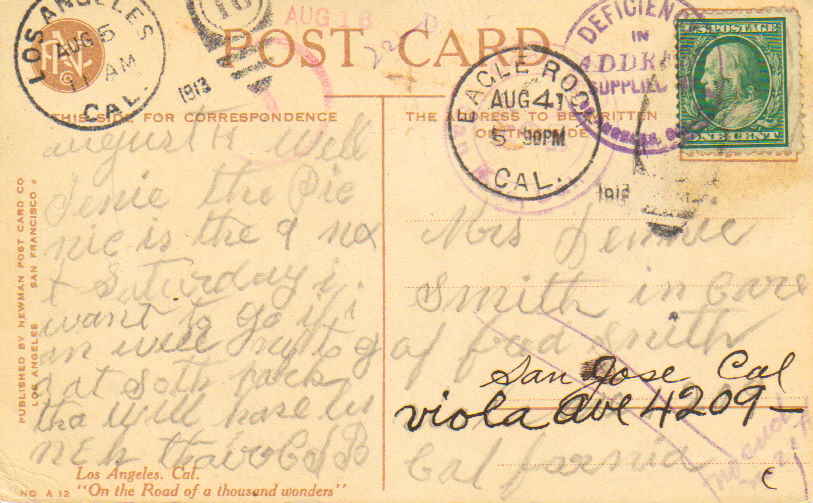 POST CARD
THIS SIDE FOR CORRESPONDENCE
THE ADDRESS TO BE WRITTEN
ON THIS SIDE
LOS ANGELES
AUG 5
AM
1913
CAL.
AUG 18
EAGLE ROCK
AUG 4
5 30PM
CAL.
1913
DEFICIEN
IN
ADDRE
SUPPLIED
U.S. POSTAGE
ONE CENT
august 15 Will
Jenie the Pic
nic is the 9 nex
t Saturday i.
want to go if i
an will try to g
o at South park
tha will have lu
nch
Mrs Jennie
Smith in Care
of fred Smith
San Jose Cal
viola ave 4209
California
PUBLISHED BY NEWMAN POST CARD CO
LOS ANGELES SAN FRANCISCO
Los Angeles, Cal.
NO. A 12 "On the Road of a thousand wonders"